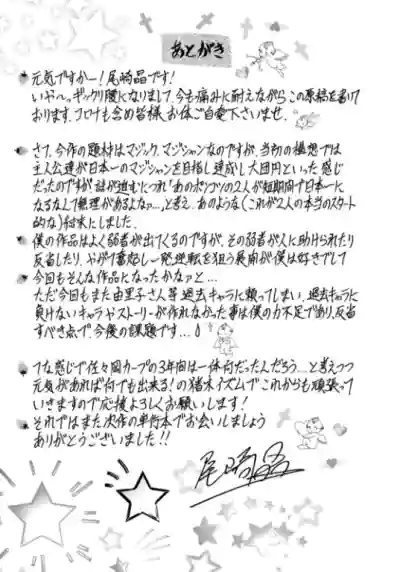 あとがき
元気ですかー!尾﨑晶です!
いや〜っ、ギックリ腰になりまして、今も痛みに耐えながらこの原稿を書いて
おります。コロナも含め皆様、お体ご自愛下さいませ。
さて、今作の題材はマジック、マジシャンなのですが、当初の構想では
主人公達が日本一のマジシャンを目指し達成し大団円といった感じ
だったのですが、話が進むにつれ「あのポンコツの2人が短期間で日本一に
なるなんて無理があるよなァ…」と考え、あのような(これが2人の本当のスタート
的な)結末にしました。
僕の作品はよく弱者が出てくるのですが、その弱者が人に助けられたり
反省したり、やがて奮起し一発逆転を狙う展開が僕は好きでして
今回もそんな作品になったかなァと…
ただ今回もまた由里子さん等過去キャラに頼ってしまい、過去キャラに
負けないキャラやストーリーが作れなかった事は僕の力不足であり、反省
すべき点で、今後の課題です…
てな感じで佐々岡カープの3年間は一体何だったんだろう…と考えつつ
元気があれば何でも出来る!の猪木イズムでこれからも頑張って
いきますので応援よろしくお願いします!
それではまた次作の単行本でお会いしましょう
ありがとうございました!!
尾﨑晶